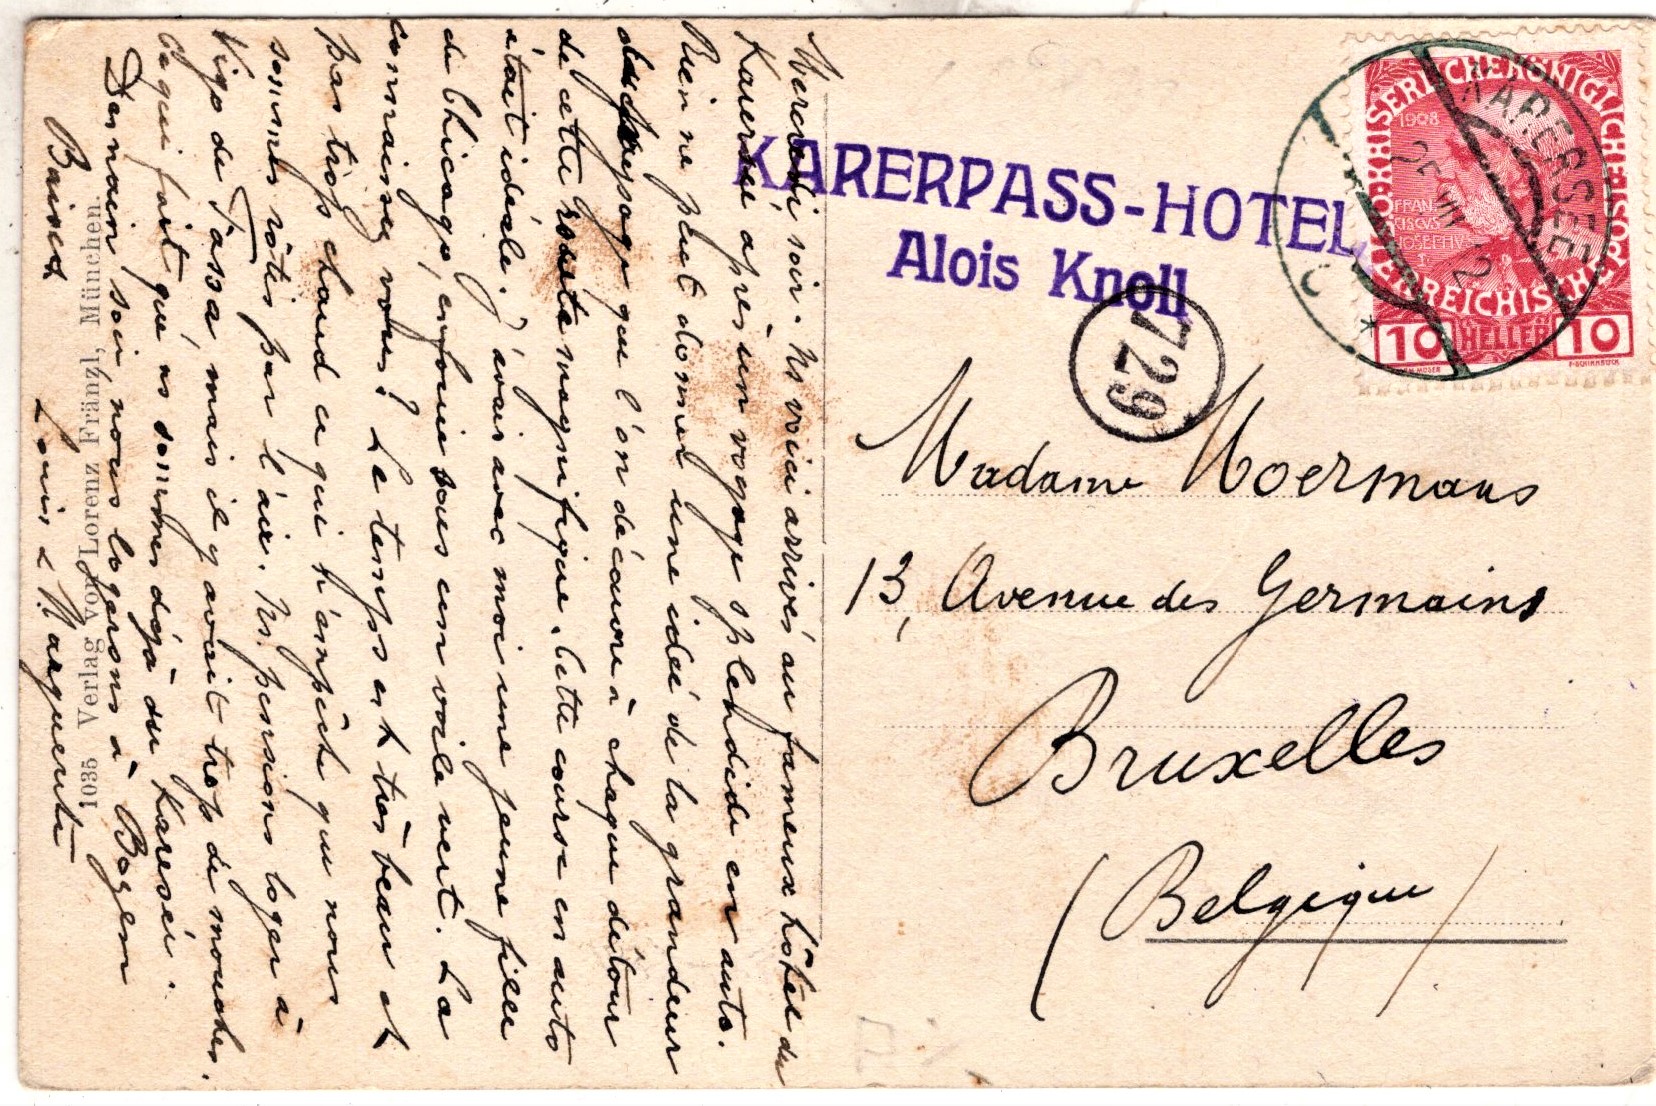 Mercredi soir. Ns voici arrivés au fameux hôtel du
Karersee après un voyage splendide en auto.
Rien ne peut donner une idée de la grandeur
du paysage que l'on découvre à chaque détour
de cette route magnifique. Cette course en auto
était idéale. J'avais avec moi une jeune fille
de Chicago, enfouie sous un voile vert. La
connaissez vous? Le temps est très beau et
pas trop chaud ce qui n'empêche que nous
sommes rôtis par l'air. Ns pensions loger à
Vigo di Fassa, mais il y avait trop de mouches,
ce qui fait que ns sommes déjà au Karersee.
Demain soir nous logerons à Bozen
Baisers
Louis & Marguerite
1035 Verlag von Lorenz Fränzl, München.
KARERPASS-HOTEL
Alois Knoll
729
KAISERLICHE KÖNIGLICHE ÖSTERREICHISCHE POST
1908
FRAN
CISCVS
IOSEPHVS
10 HELLER 10
KARERSEE
25 VIII 12
Madame Moermans
13, Avenue des Germains
Bruxelles
(Belgique)